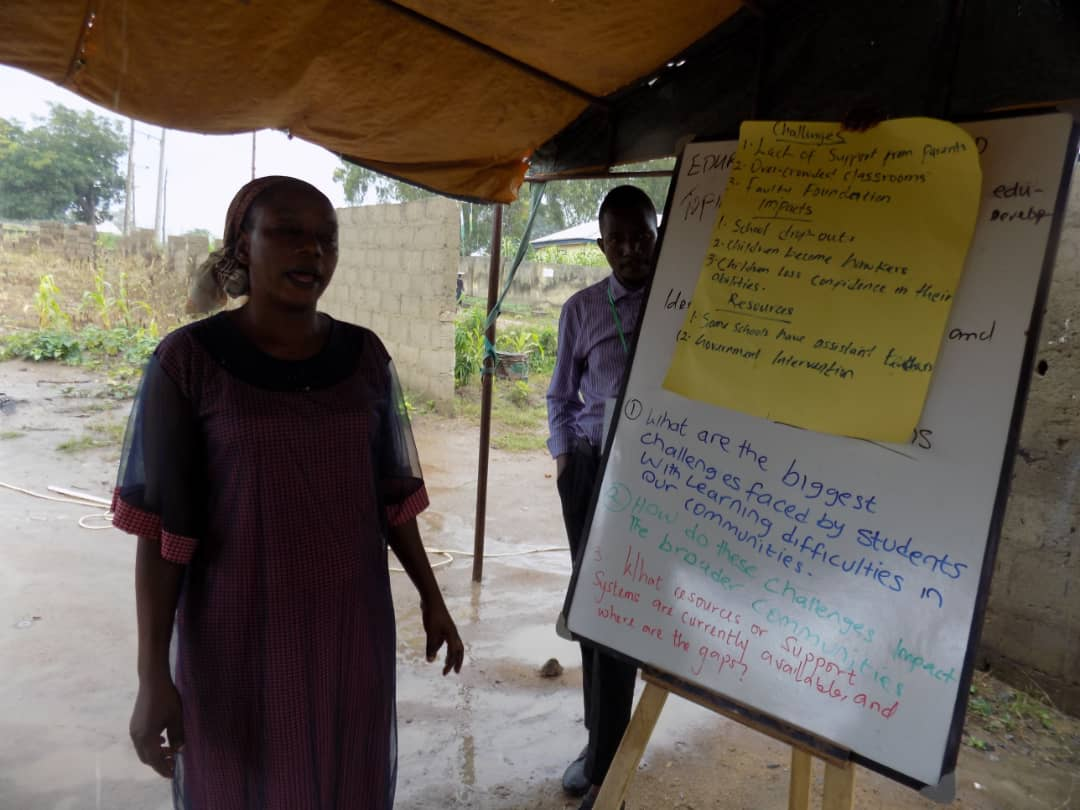 Challenges
1. Lack of Support from Parents
2. Over-crowded classrooms
3. Faulty Foundation
Impacts
1. School drop-outs
2. Children become hawkers
3. Children loss confidence in their
abilities.
Resources
1. Some schools have assistant teachers
2. Government Intervention
edu-
Develop
and
① What are the biggest
challenges faced by students
With Learning difficulties in
our communities.
② How do these challenges impact
The broader communities
3 What resources or Support
Systems are currently available, and
where are the gaps?